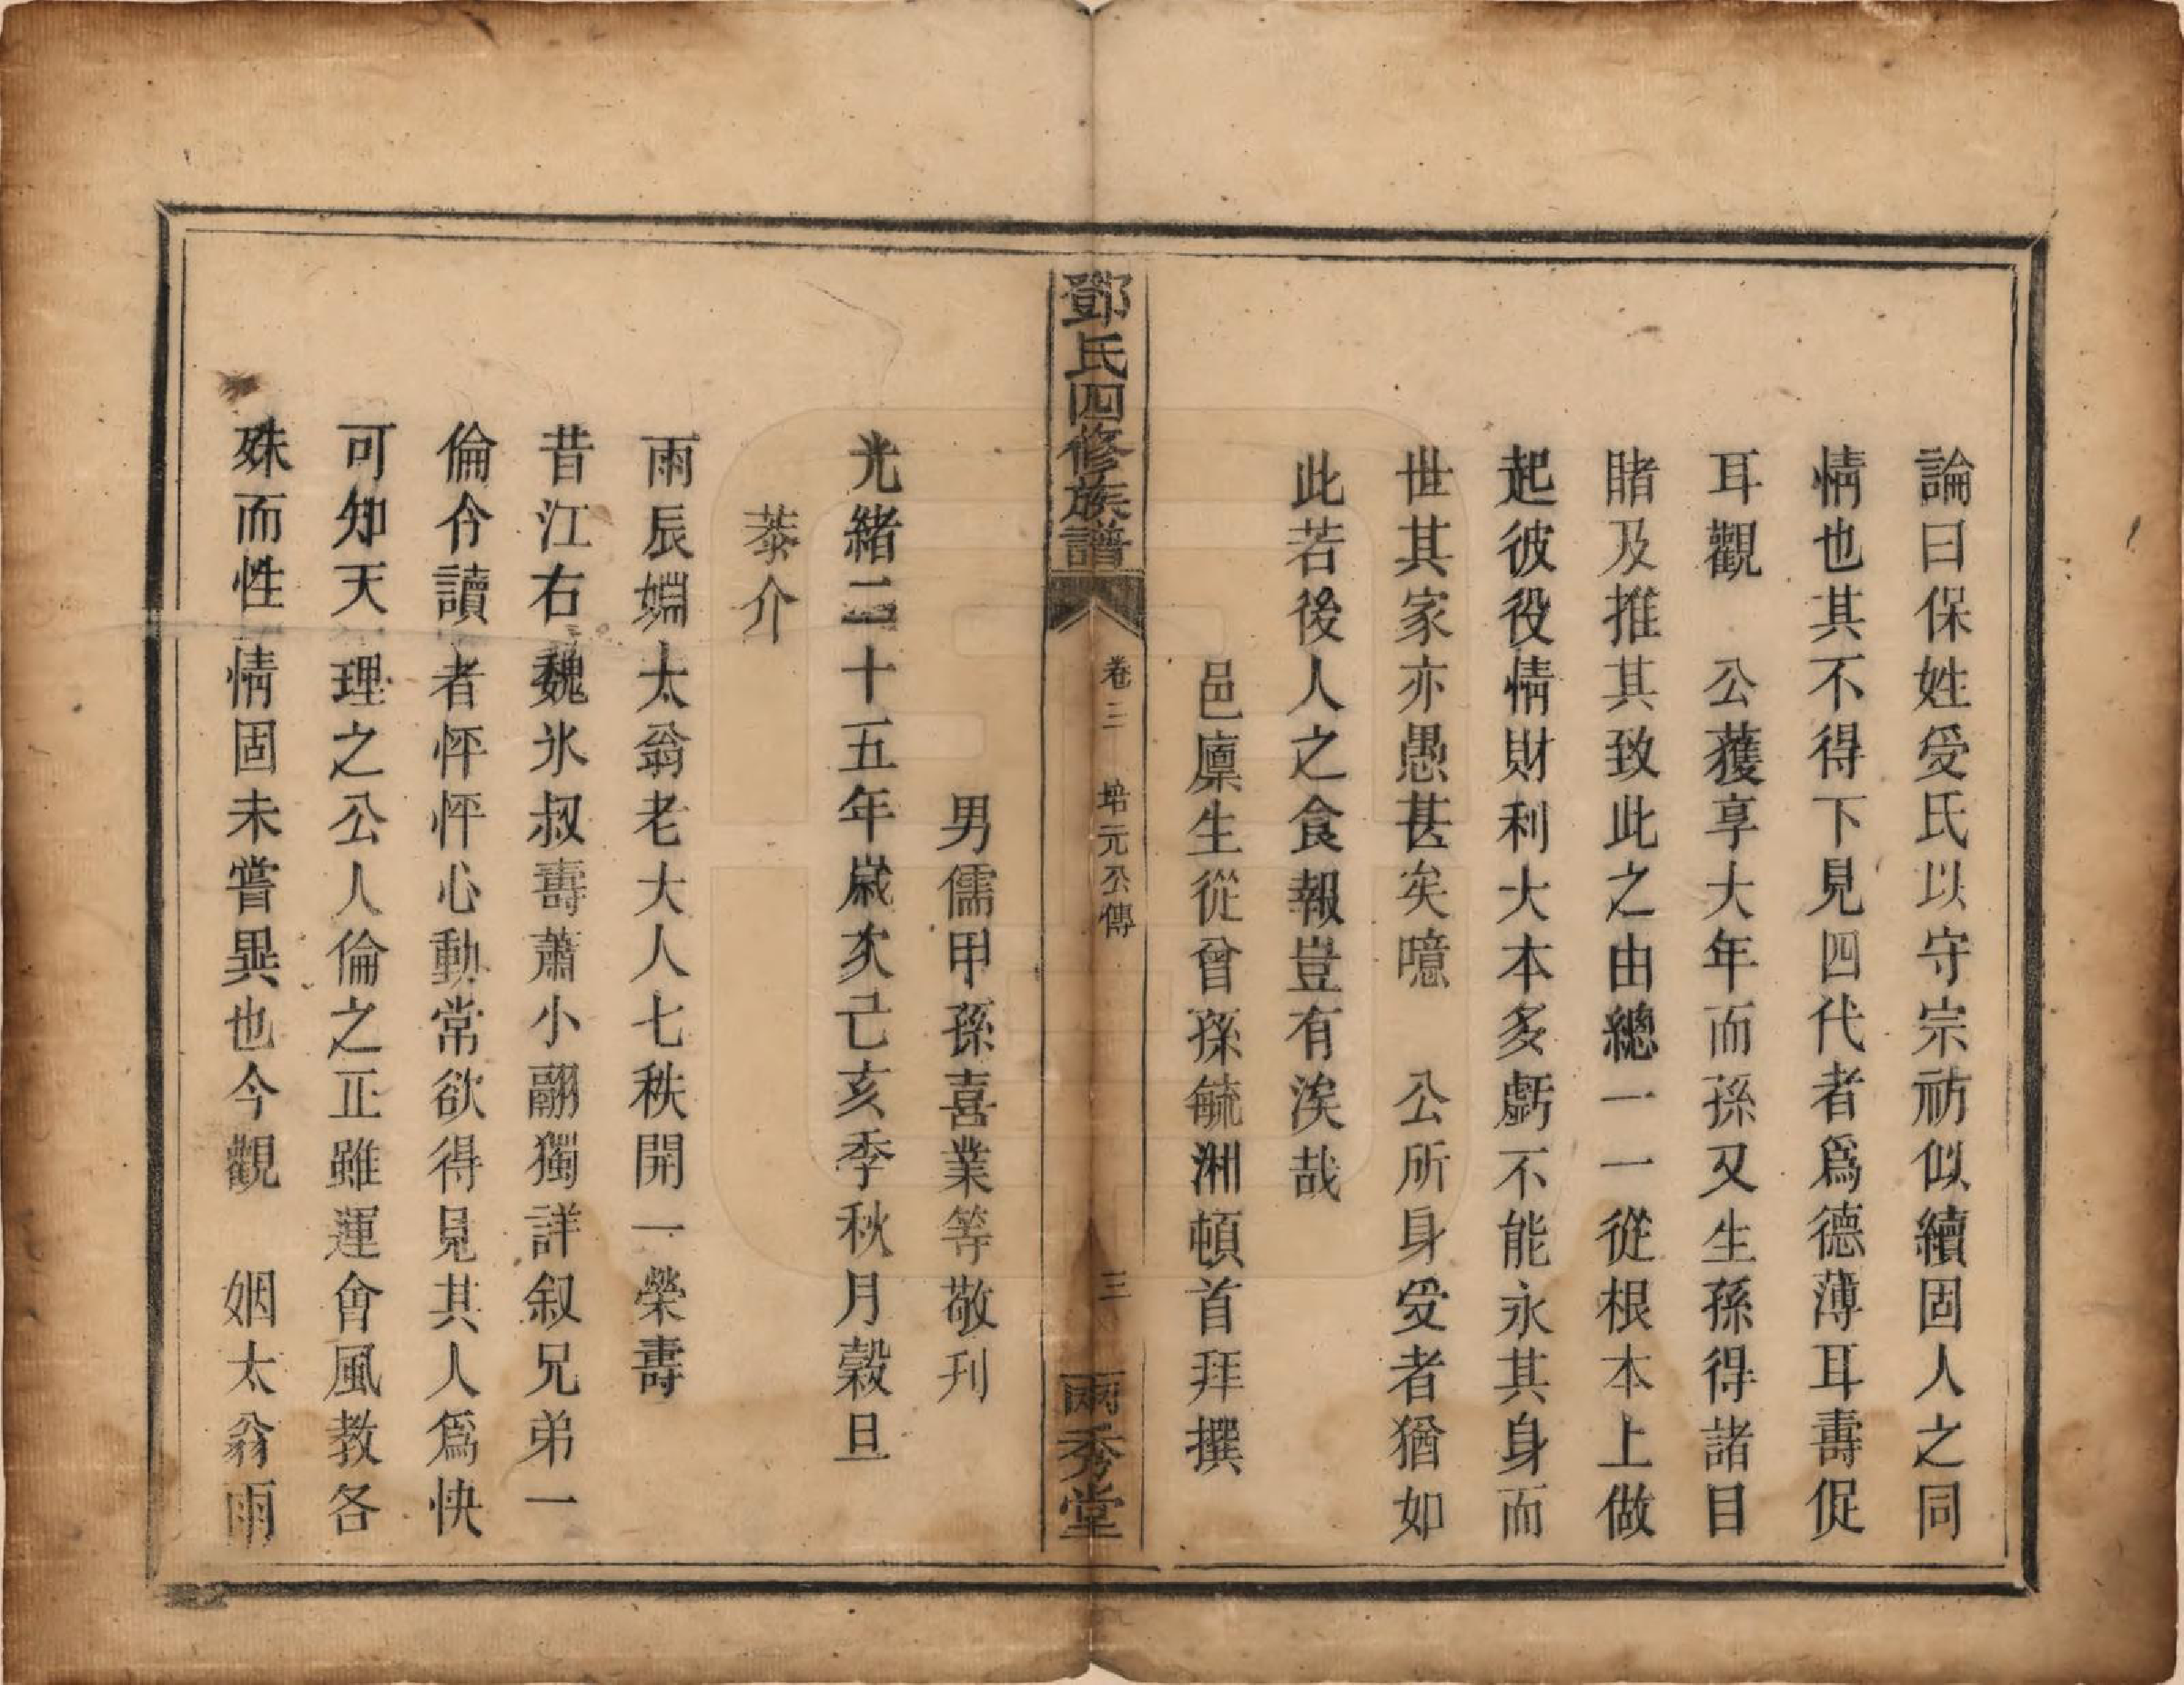 論曰保姓受氏以守宗祊似續固人之同
情也其不得下見四代者爲德薄耳壽促
耳觀　公獲享大年而孫又生孫得諸目
賭及推其致此之由總一一從根本上做
起彼役情財利大本多虧不能永其身而
世其家亦愚甚矣噫　公所身受者猶如
此若後人之食報豈有涘哉
邑廪生從曾孫毓洲頓首拜撰
鄧氏四修族譜
卷三　培元公傳
三
兩秀堂
男儒甲孫喜業等敬刋
光緒二十五年嵗次己亥季秋月榖旦
恭介
雨辰婣太翁老大人七秩開一榮壽
昔江右魏氷叔壽蕭小翮獨詳叙兄弟一
倫令讀者怦怦心動常欲得見其人爲快
可知天理之公人倫之正雖運會風教各
殊而性情固未嘗異也今觀　姻太翁雨